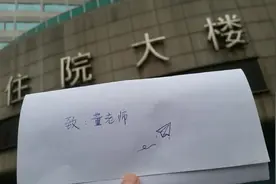 住院大楼
致:董老师